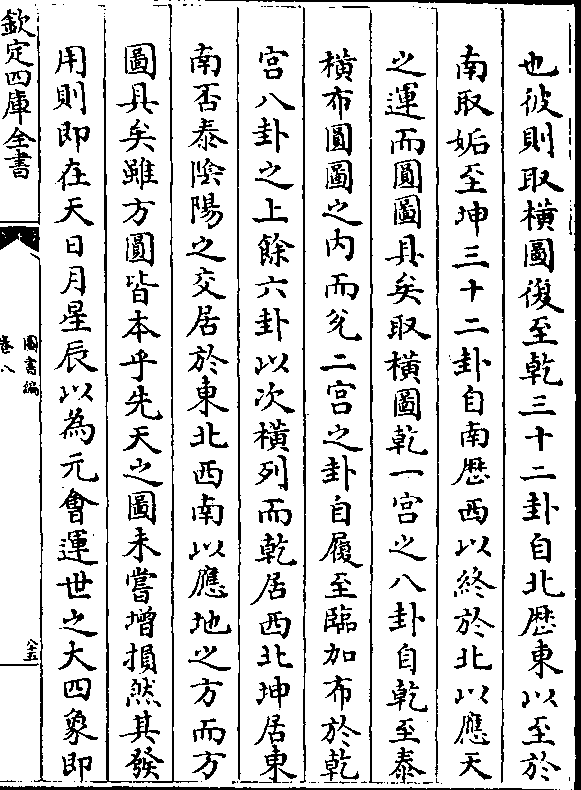 也彼則取橫圖復至乾三十二卦自北歴東以至於
南取姤至坤三十二卦自南歴西以終於北以應天
之運而圓圖具矣取橫圖乾一宫之八卦自乾至泰
橫布圓圖之内而兊二宫之卦自履至臨加布於乾
宫八卦之上餘六卦以次橫列而乾居西北坤居東
南否泰隂陽之交居於東北西南以應地之方而方
圖具矣雖方圓皆本乎先天之圖未嘗增損然其發
用則即在天日月星辰以為元會運世之大四象即
欽定四庫全書
圖書編
卷八